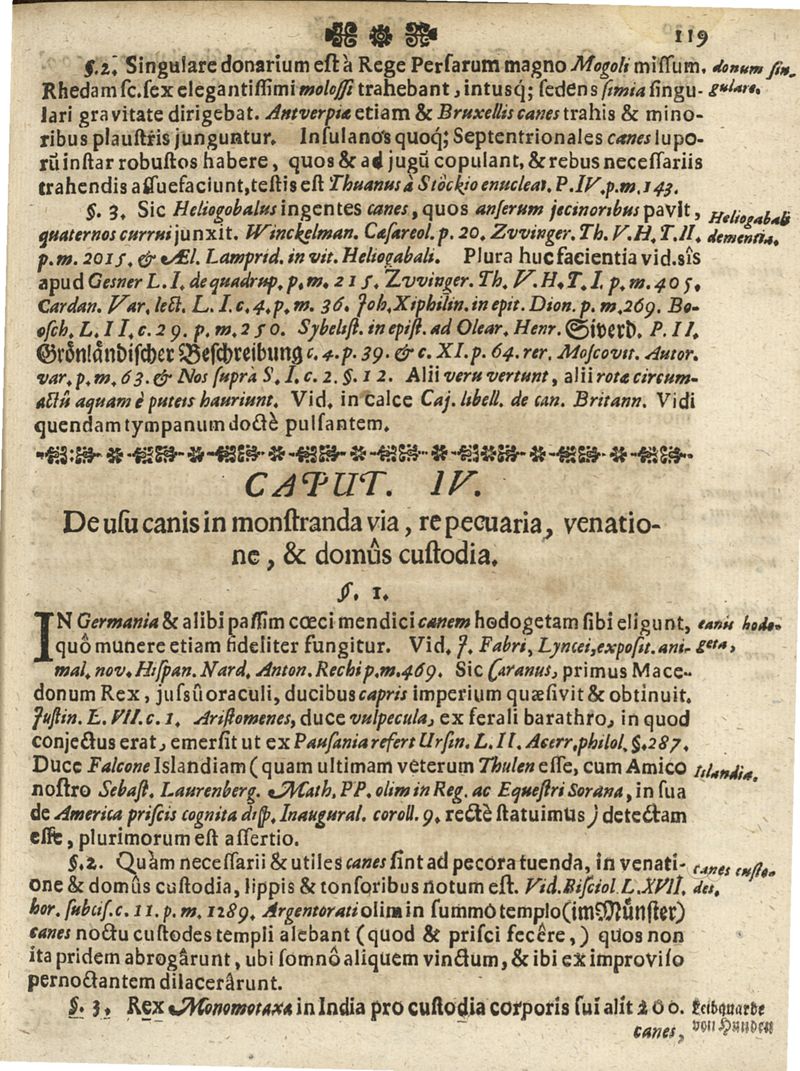 119
§.2. Singulare donarium est à Rege Persarum magno Mogoli missum. donum sin-
Rhedam sc. sex elegantissimi molossi trahebant, intusq́; sedens simia singu- gulare.
lari gravitate dirigebat. Antverpiæ etiam & Bruxellis canes trahis & mino-
ribus plaustris junguntur. Insulanos quoq; Septentrionales canes lupo-
rũ instar robustos habere, quos & ad jugũ copulant, & rebus necessariis
trahendis assuefaciunt, testis est Thuanus à Stöckio enucleat. P. IV. p. m. 143.
§. 3. Sic Heliogobalus ingentes canes, quos anserum jecinoribus pavit, Heliogabali
quaternos currui junxit. Winckelman. Cæsareol. p. 20. Zvvinger. Th. V. H. T. II. dementia.
p. m. 2015. & Æl. Lamprid. in vit. Heliogabali. Plura huc facientia vid. sîs
apud Gesner L. I. de quadrup. p. m. 215. Zvvinger. Th. V. H. T. I. p. m. 405.
Cardan. Var. lect. L. I. c. 4. p. m. 36. Joh. Xiphilin. in epit. Dion. p. m. 269. Bo-
osch. L. II. c. 29. p. m. 250. Sybelist. in epist. ad Olear. Henr. Siverd. P. II.
Grönländischer Beschreibung c. 4. p. 39. & c. XI. p. 64. rer. Moscovit. Autor.
var. p. m. 63. & Nos suprà S. I. c. 2. §. 12. Alii veru vertunt, alii rotæ circum-
actû aquam è puteis hauriunt. Vid. in calce Caj. libell. de can. Britann. Vidi
quendam tympanum doctè pulsantem.
CAPUT. IV.
De usu canis in monstranda via, re pecuaria, venatio-
ne, & domûs custodia.
§. 1.
IN Germania & alibi passim cœci mendici canem hodogetam sibi eligunt, canis hodo-
quô munere etiam fideliter fungitur. Vid. J. Fabri, Lyncei, exposit. ani- geta.
mal. nov. Hispan. Nard. Anton. Rechi p. m. 469. Sic Caranus, primus Mace-
donum Rex, jussû oraculi, ducibus capris imperium quæsivit & obtinuit.
Justin. L. VII. c. 1. Aristomenes, duce vulpecula, ex ferali barathro, in quod
conjectus erat, emersit ut ex Pausania refert Ursin. L. II. Acerr. philol. §. 287.
Duce Falcone Islandiam (quam ultimam veterum Thulen esse, cum Amico Islandia.
nostro Sebast. Laurenberg. Math. PP. olim in Reg. ac Equestri Sorana, in sua
de America priscis cognita disp. Inaugural. coroll. 9. rectè statuimus) detectam
esse, plurimorum est assertio.
§.2. Quàm necessarii & utiles canes sint ad pecora tuenda, in venati- canes custo-
one & domûs custodia, lippis & tonsoribus notum est. Vid. Bisciol. L. XVII. des.
hor. subcis. c. 11. p. m. 1289. Argentorati olim in summo templo (im Münster)
canes noctu custodes templi alebant (quod & prisci fecêre,) quos non
ita pridem abrogârunt, ubi somnô aliquem vinctum, & ibi ex improviso
pernoctantem dilacerârunt.
§. 3. Rex Monomotaxa in India pro custodia corporis sui alit 200. Leibquarde
canes, von Hunden